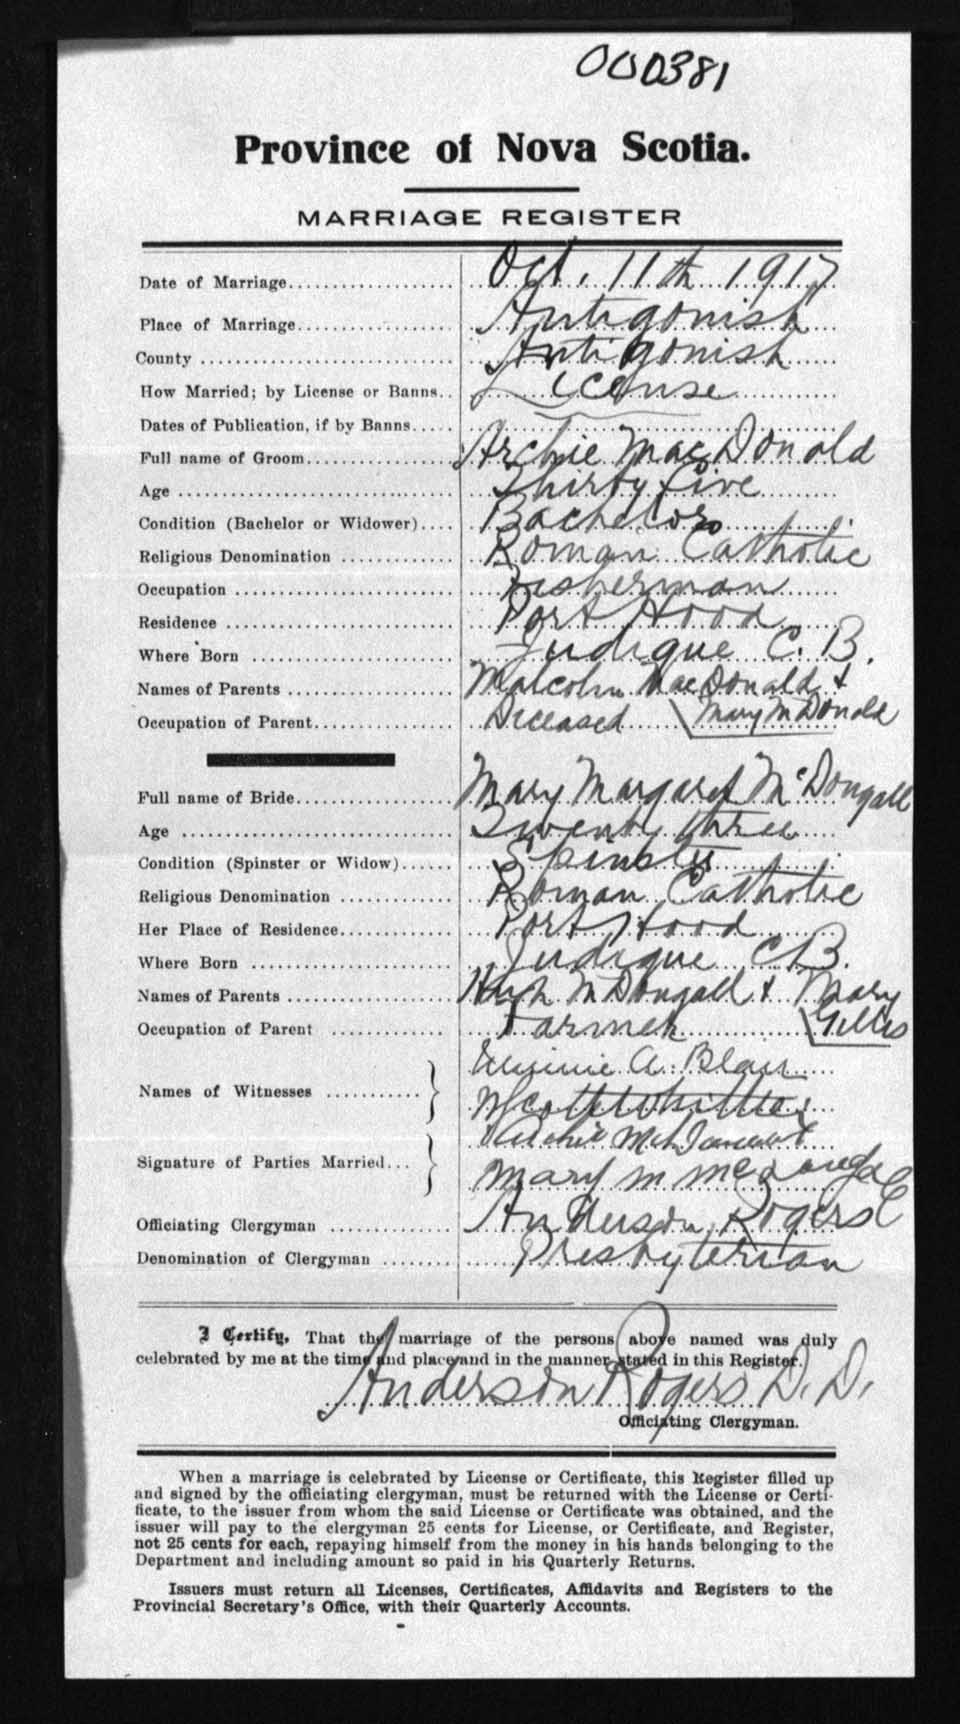 000381
Province of Nova Scotia.
MARRIAGE REGISTER
Date of Marriage.................... Oct. 11th 1917
Place of Marriage.................. Antigonish
County ............................ Antigonish
How Married; by License or Banns.. License
Dates of Publication, if by Banns.....
Full name of Groom................. Archie MacDonald
Age ................................ Thirty five
Condition (Bachelor or Widower).... Bachelor
Religious Denomination ............. Roman Catholic
Occupation ......................... Fisherman
Residence .......................... Port Hood
Where Born ......................... Judique C. B.
Names of Parents ................... Malcolm MacDonald &
Occupation of Parent................ Deceased Mary McDonald
Full name of Bride.................. Mary Margaret McDougall
Age ................................ Twenty three
Condition (Spinster or Widow)...... Spinster
Religious Denomination ............. Roman Catholic
Her Place of Residence............. Port Hood
Where Born ......................... Judique CB.
Names of Parents ................... Hugh McDougall & Mary
Occupation of Parent ............... Farmer Gillis
Names of Witnesses ........... Minnie A. Blair
Signature of Parties Married... Archie
Mary M McDougall
Officiating Clergyman ............. Anderson Rogers
Denomination of Clergyman ........ Presbyterian
I Certify, That the marriage of the persons above named was duly
celebrated by me at the time and place and in the manner stated in this Register.
Anderson Rogers D. D.
Officiating Clergyman.
When a marriage is celebrated by License or Certificate, this Register filled up
and signed by the officiating clergyman, must be returned with the License or Certi-
ficate, to the issuer from whom the said License or Certificate was obtained, and the
issuer will pay to the clergyman 25 cents for License, or Certificate, and Register,
not 25 cents for each, repaying himself from the money in his hands belonging to the
Department and including amount so paid in his Quarterly Returns.
Issuers must return all Licenses, Certificates, Affidavits and Registers to the
Provincial Secretary's Office, with their Quarterly Accounts.